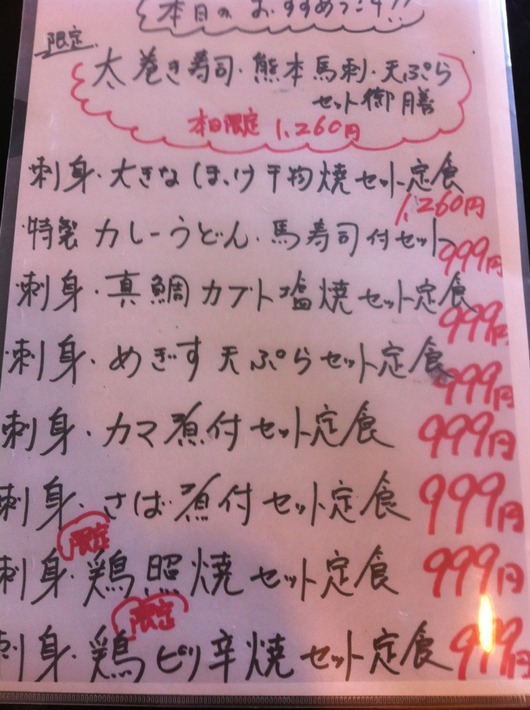 本日のおすすめっす!!
限定
太巻き寿司・熊本馬刺・天ぷら
セット御膳
本日限定 1,260円
刺身・大きなほっけ干物焼セット定食
1,260円
特製カレーうどん・馬寿司付セット
999円
刺身・真鯛カブト塩焼セット定食
999円
刺身・めぎす天ぷらセット定食
999円
刺身・カマ煮付セット定食 999円
刺身・さば煮付セット定食 999円
限定
刺身・鶏照焼セット定食 999円
限定
刺身・鶏ピリ辛焼セット定食 999円